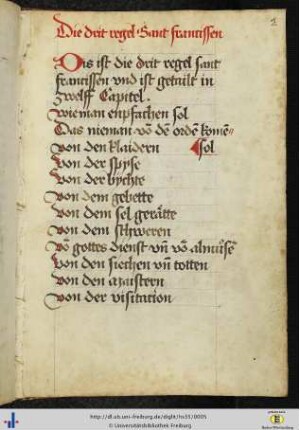 Die drit regel Sant francissen
Dis ist die drit regel sant
francissen vnd ist getailt in
zwelff Capitel.
wie man enpfachen sol
Das nieman vō dē ordē komē
von den klaidern sol
Von der spyse
Von der bychte
Von dem gebette
Von dem sel gerätte
Von dem schweren
Vō gottes dienst vn̄ vō almůsē
Von den siechen vn̄ totten
Von den maistern
Von der visitation
http://dl.ub.uni-freiburg.de/diglit/hs31/0005
© Universitätsbibliothek Freiburg